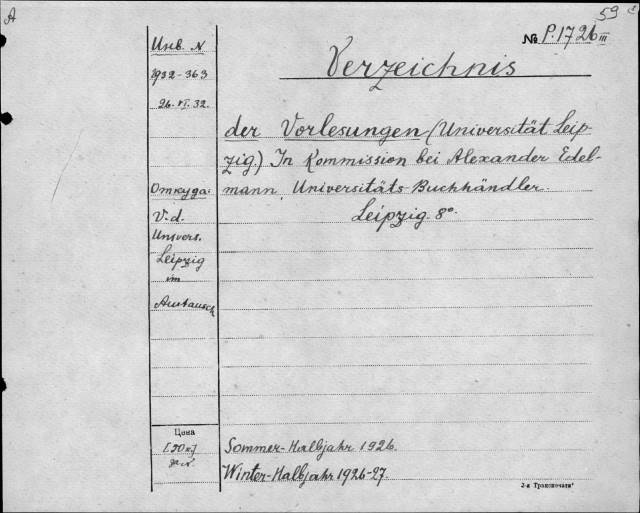 A
59
№ P.1726 III
Инв. N
1932-363
26.VI.32.
Откуда:
V. d.
Univers.
Leipzig
im
Austausch
Verzeichnis
der Vorlesungen (Universität Leip-
zig.) In Kommission bei Alexander Edel-
mann, Universitäts-Buchhändler.
Leipzig 8°.
Цена
[50к]
Sommer-Halbjahr 1926.
Winter-Halbjahr 1926-27.
2-я Транспечати